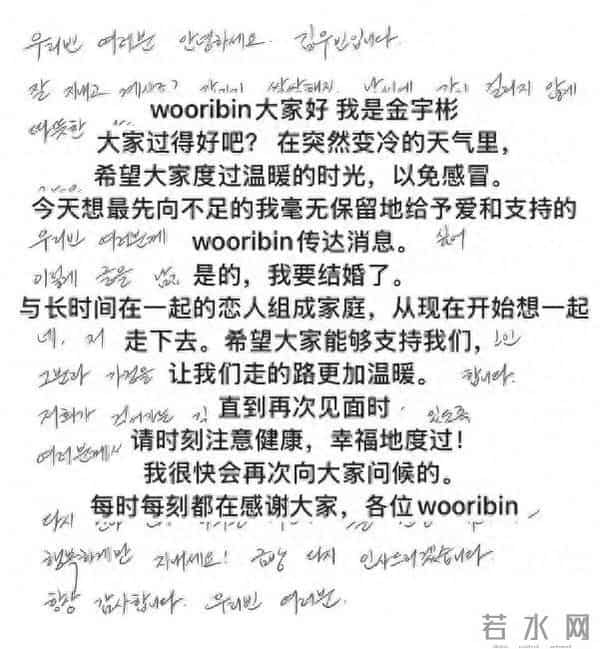 우리빈 여러분 안녕하세요. 김우빈입니다.
잘 지내고 계시죠?
wooribin大家好 我是金宇彬
따뜻한
大家过得好吧？ 在突然变冷的天气里，
希望大家度过温暖的时光，以免感冒。
今天想最先向不足的我毫无保留地给予爱和支持的
우리빈 여러분께 wooribin传达消息。
이렇게 글을 是的，我要结婚了。
与长时间在一起的恋人组成家庭，从现在开始想一起
네, 저 走下去。希望大家能够支持我们，
가정을 让我们走的路更加温暖。 합니다.
저희가 直到再次见面时
여러분께서 请时刻注意健康，幸福地度过！
我很快会再次向大家问候的。
每时每刻都在感谢大家，各位wooribin
다시
행복하게만 지내세요! 금방 다시 인사드리겠습니다.
항상 감사합니다. 우리빈 여러분.
若水网